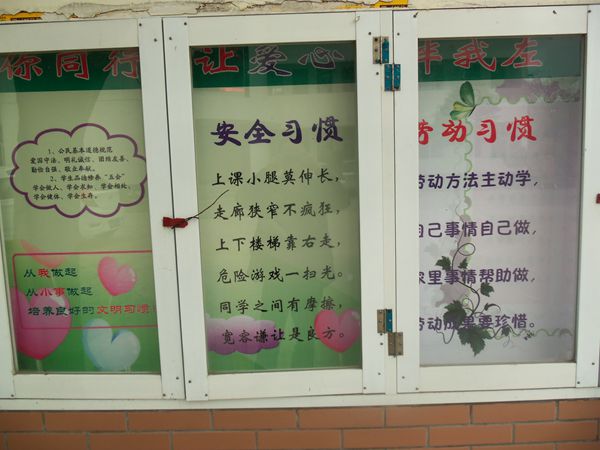 你同行 让爱心 伴我左
1、公民基本道德规范
爱国守法、明礼诚信、团结友善、
勤俭自强、敬业奉献。
2、学生品德修养“五会”
学会做人、学会求知、学会相处、
学会健体、学会生存。
从我做起
从小事做起
培养良好的文明习惯
安全习惯
上课小腿莫伸长，
走廊狭窄不疯狂，
上下楼梯靠右走，
危险游戏一扫光。
同学之间有摩擦，
宽容谦让是良方。
劳动习惯
劳动方法主动学，
自己事情自己做，
家里事情帮助做，
劳动成果要珍惜。